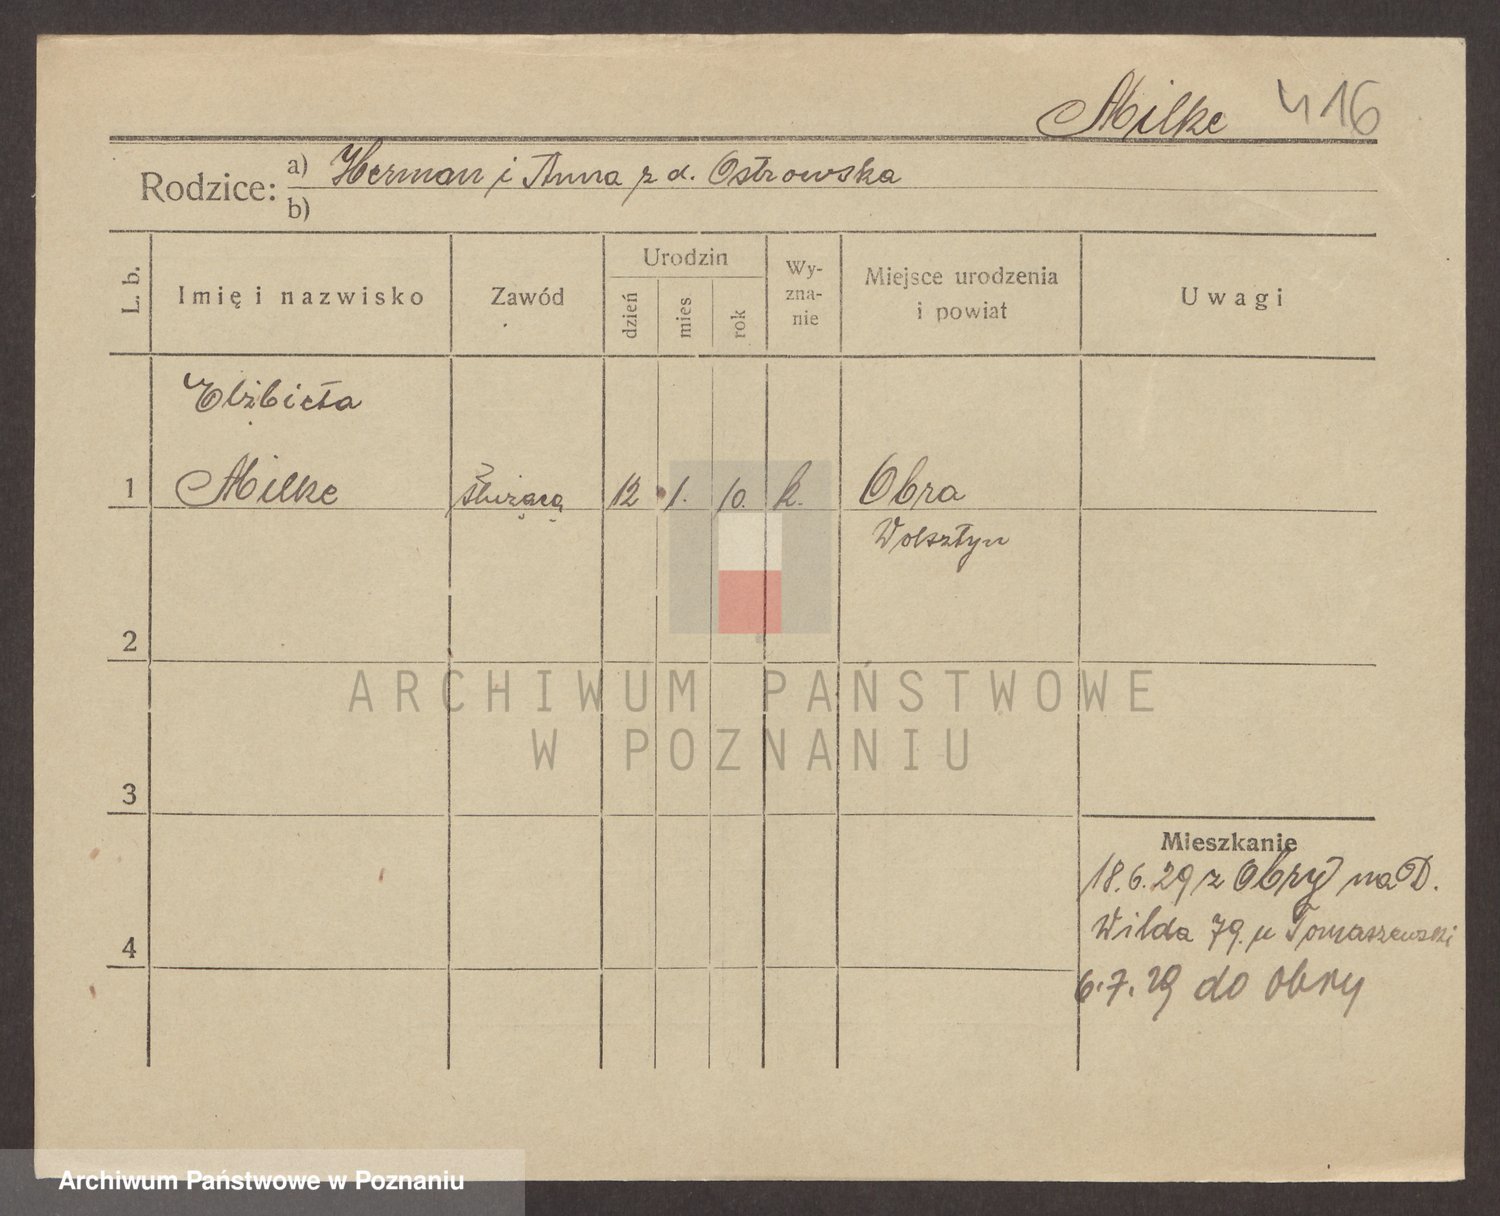 Milke 416
Rodzice: a) Herman i Anna z d. Ostrowska
b)
L. b. Imię i nazwisko Zawód Urodzin dzień mies rok Wy-zna-nie Miejsce urodzenia i powiat Uwagi
Elżbieta
1 Milke służąca 12 1. 10. k. Obra
Wolsztyn
2
ARCHIWUM PAŃSTWOWE
W POZNANIU
3
Mieszkanie
18.6.29 z Obry na D.
Wilda 79. u Tomaszewski
4
6.7.29 do Obry
Archiwum Państwowe w Poznaniu